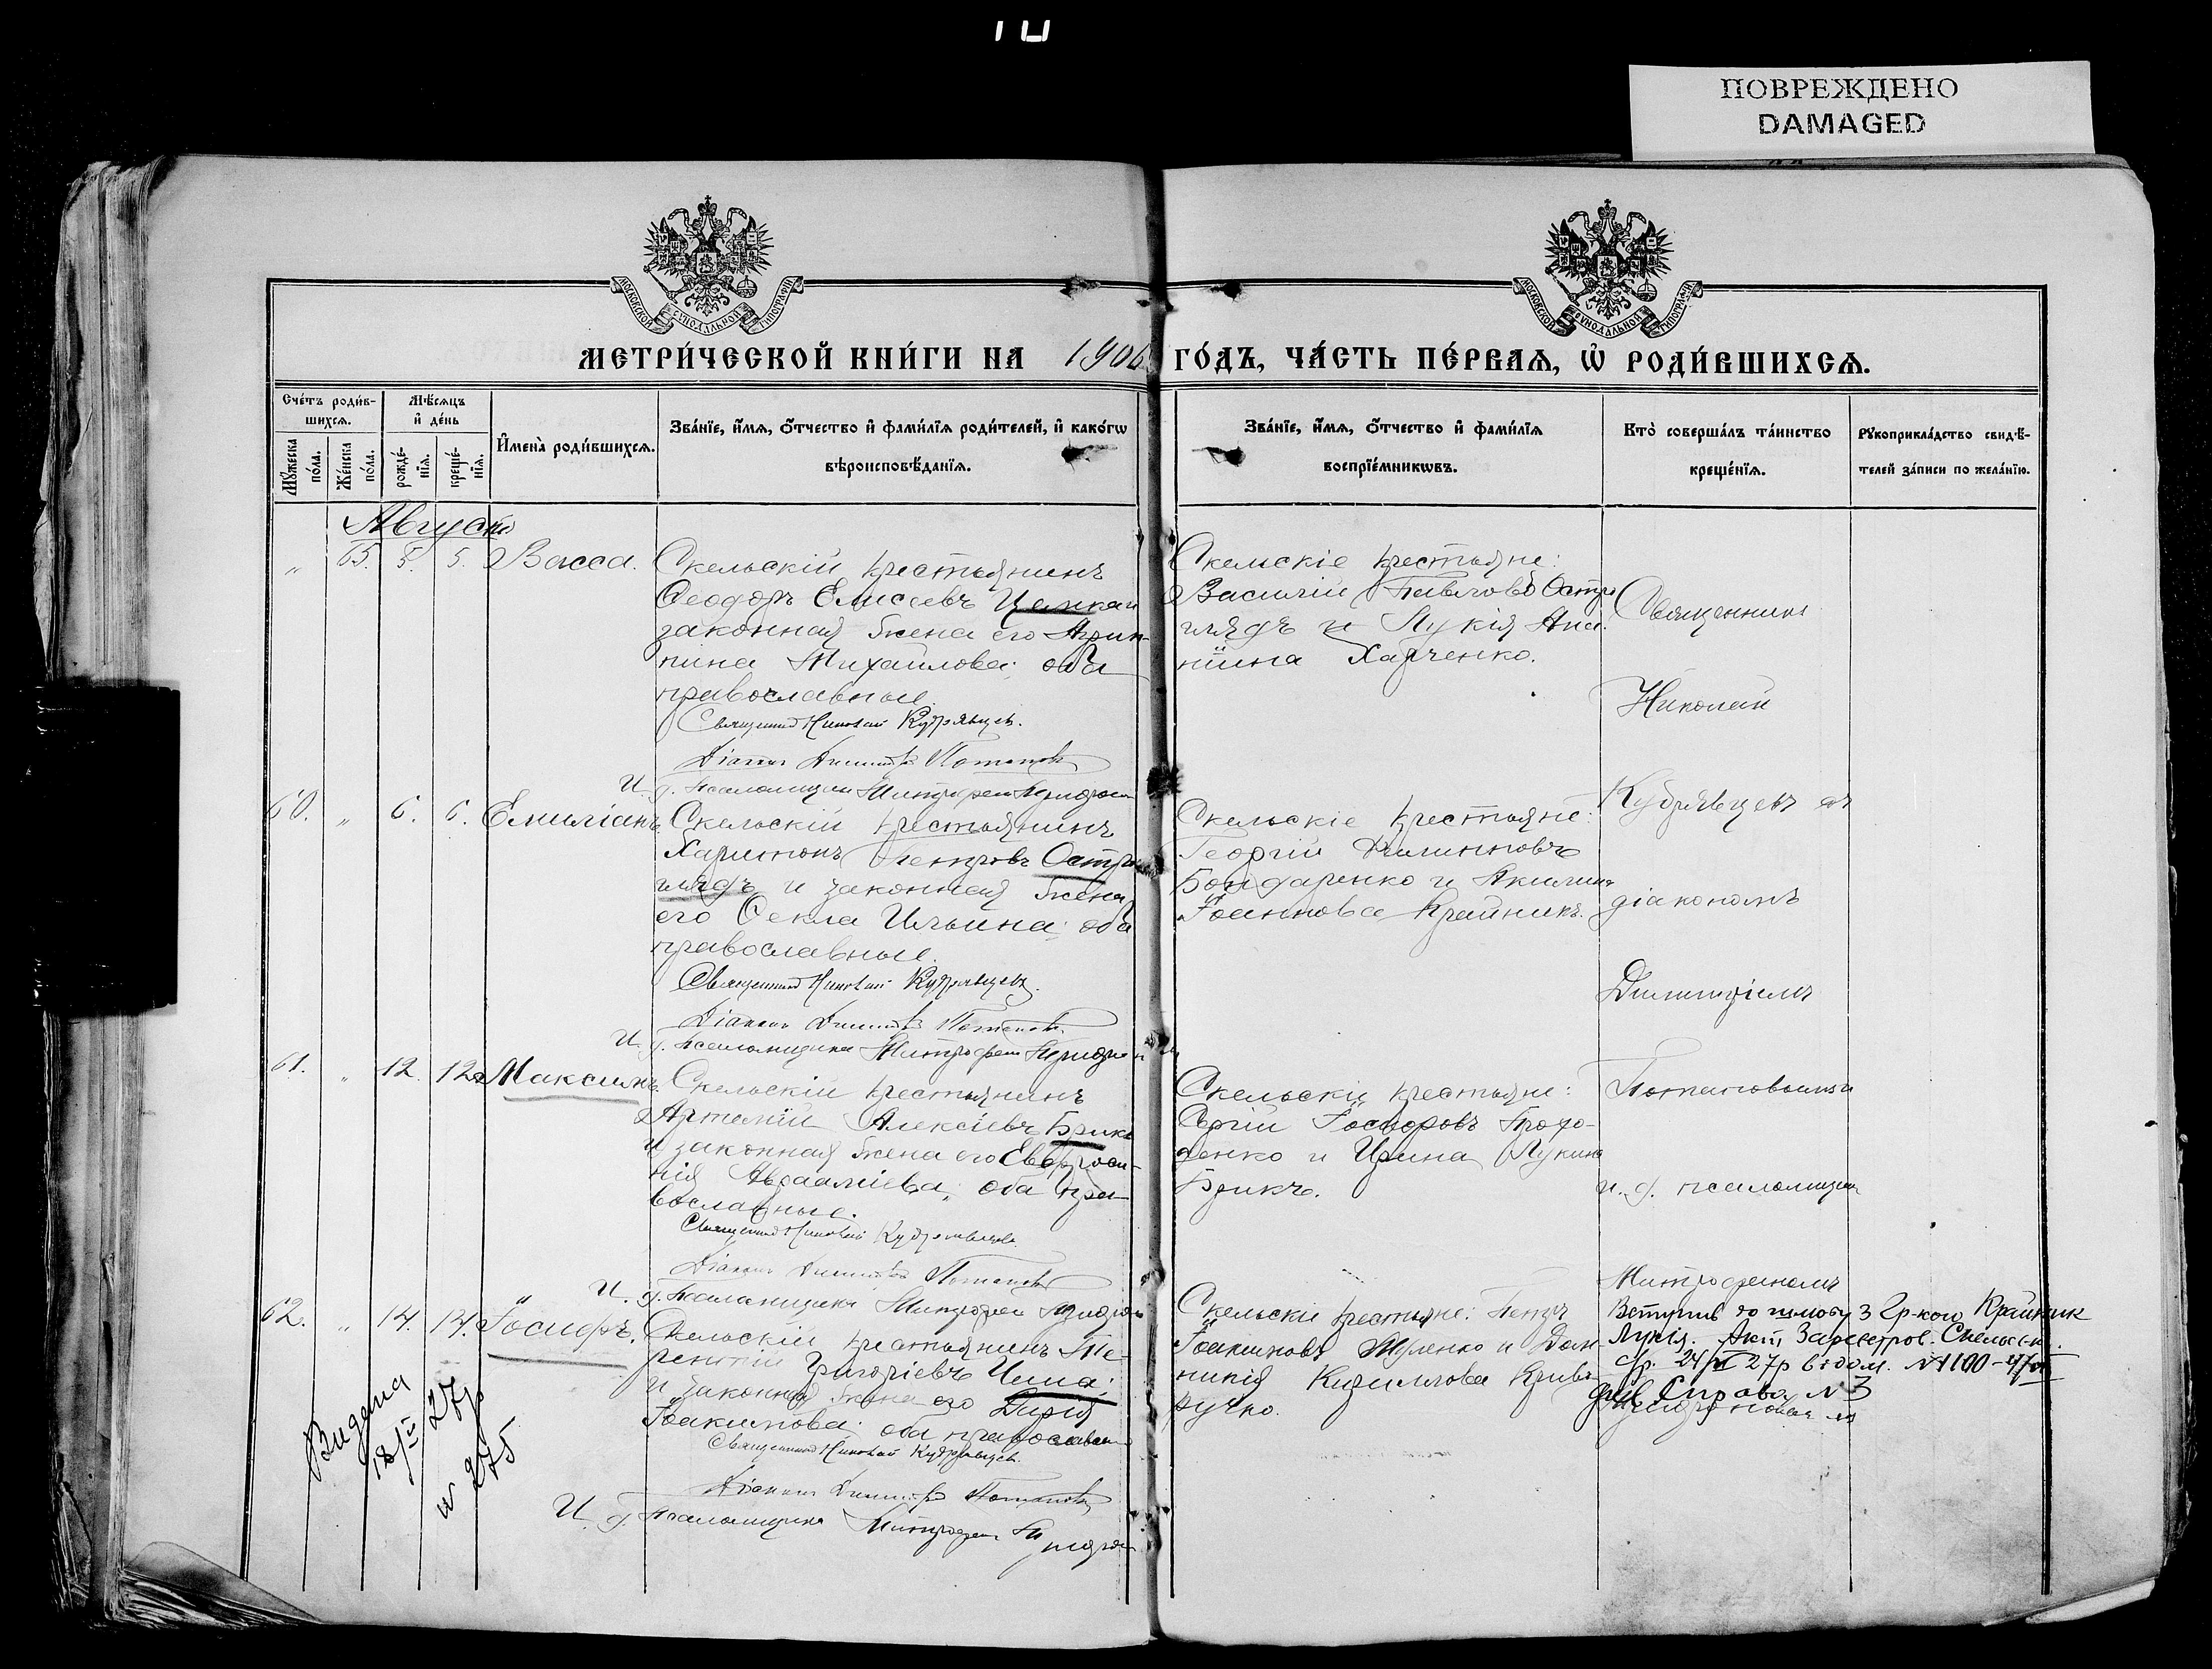 ПОВРЕЖДЕНО
DAMAGED
МОСКОВСКОЙ СѴНОДАЛЬНОЙ ТИПОГРАФІИ
МОСКОВСКОЙ СѴНОДАЛЬНОЙ ТИПОГРАФІИ
МЕТРИ́ЧЕСКОЙ КНИ́ГИ НА 1906 ГО́ДЪ, ЧА́СТЬ ПЕ́РВАѦ, Ѡ҆ РОДИ́ВШИХСѦ.
Сче́тъ роди́в-
шихсѧ.
Мѣ́сѧцъ
и҆ де́нь
Мꙋ́жеска
по́ла.
Же́нска
по́ла.
рожде́-
нїѧ.
креще́-
нїѧ.
И҆мена̀ роди́вшихсѧ.
Зва́нїе, и҆́мѧ, ѻ҆́тчество и҆ фами́лїѧ роди́телей, и҆ како́гѡ
вѣроисповѣ́данїѧ.
Зва́нїе, и҆́мѧ, ѻ҆́тчество и҆ фами́лїѧ
воспрїе́мникѡвъ.
Кто̀ соверша́лъ та́инство
креще́нїѧ.
Рꙋкоприкла́дство свидѣ́-
телей за́писи по жела́нїю.
Августъ
" 65. 5. 5. Васса.
Скельскій крестьянинъ
Ѳеодоръ Елисеевъ
законная жена его Агрип-
пина Михаилова; оба
православные.
Священникъ Николай Кудрявцевъ.
Діаконъ Димитрій Потаповъ
И. д. псаломщика Митрофанъ
Скельскіе крестьяне:
Василій Павловъ Остро
глядъ и Лукія Ана-
ніина Харченко.
Священникъ
Николай
Кудрявцевъ съ
діакономъ
Димитріемъ
Потаповымъ и
и. д. псаломщика
Митрофаномъ
60. " 6. 6. Емиліанъ.
Скельскій крестьянинъ
Харитонъ Петровъ Остро
глядъ и законная жена
его Ѳекла Ильина; оба
православные.
Священникъ Николай Кудрявцевъ.
Діаконъ Димитрій Потаповъ
И. д. псаломщика Митрофанъ
Скельскіе крестьяне:
Георгій Филипповъ
Бондаренко и Акилина
Іоаннова Крайникъ.
61. " 12. 12. Максимъ.
Скельскій крестьянинъ
Артемій Алексіевъ Брикъ
и законная жена его Евфроси-
нія Авраамиева; оба пра-
вославные.
Священникъ Николай Кудрявцевъ
Діаконъ Димитрій Потаповъ
И. д. псаломщика Митрофанъ
Скельскіе крестьяне:
Сергій
денко и Ирина Лукина
Брикъ.
62. " 14. 14. Іосифъ.
Скельскій крестьянинъ Те-
рентій Григоріевъ
и законная жена его Дарія
Іоакимова; оба православн
Священникъ Николай Кудрявцевъ
Діаконъ Димитрій Потаповъ
И. д. псаломщика Митрофанъ
Скельскіе крестьяне: Петръ
Іоакимовъ и Дом-
никія Кириллова Криво-
ручко.
Вступив до шлюбу з гр-кою Крайник
Лукія. Акт Зареєстров. Скельськ.
Справа № 3
Видана
18/IV 27р
№ 275